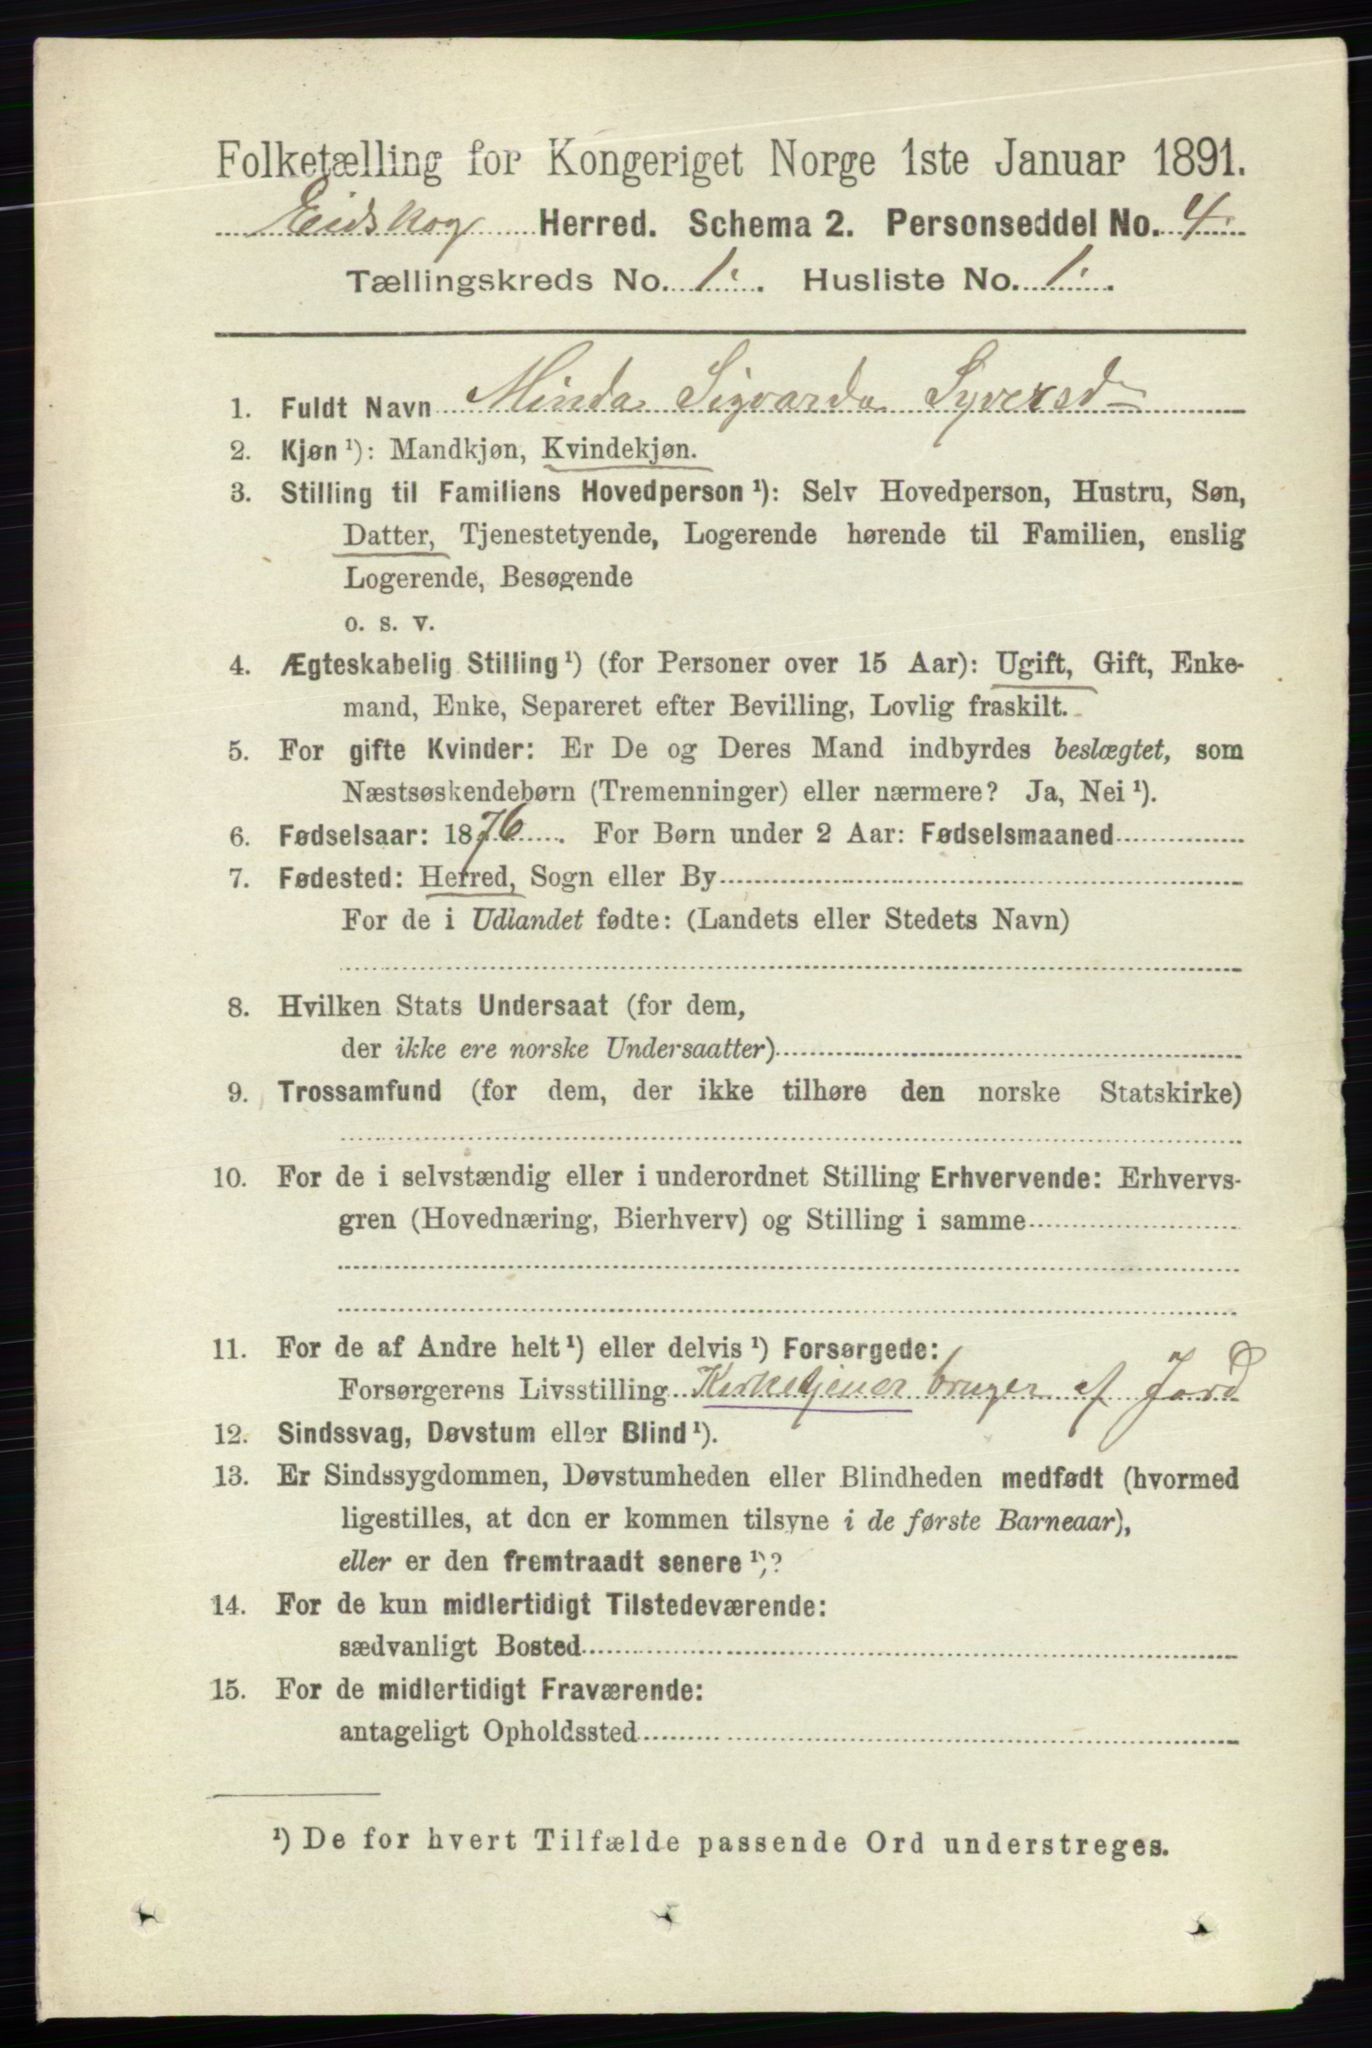 Folketælling for Kongeriget Norge 1ste Januar 1891.
Eidskog Herred. Schema 2. Personseddel No. 4.
Tællingskreds No. 1. Husliste No. 1.
1. Fuldt Navn Minda Sigvarda Syversd
2. Kjøn ¹): Mandkjøn, Kvindekjøn.
3. Stilling til Familiens Hovedperson ¹): Selv Hovedperson, Hustru, Søn,
Datter, Tjenestetyende, Logerende hørende til Familien, enslig
Logerende, Besøgende
o. s. v.
4. Ægteskabelig Stilling ¹) (for Personer over 15 Aar): Ugift, Gift, Enke-
mand, Enke, Separeret efter Bevilling, Lovlig fraskilt.
5. For gifte Kvinder: Er De og Deres Mand indbyrdes beslægtet, som
Næstsøskendebørn (Tremenninger) eller nærmere? Ja, Nei ¹).
6. Fødselsaar: 1876. For Børn under 2 Aar: Fødselsmaaned
7. Fødested: Herred, Sogn eller By
For de i Udlandet fødte: (Landets eller Stedets Navn)
8. Hvilken Stats Undersaat (for dem,
der ikke ere norske Undersaatter)
9. Trossamfund (for dem, der ikke tilhøre den norske Statskirke)
10. For de i selvstændig eller i underordnet Stilling Erhvervende: Erhvervs-
gren (Hovednæring, Bierhverv) og Stilling i samme
11. For de af Andre helt ¹) eller delvis ¹) Forsørgede:
Forsørgerens Livsstilling Kirketjener bruger af Jord
12. Sindssvag, Døvstum eller Blind ¹).
13. Er Sindssygdommen, Døvstumheden eller Blindheden medfødt (hvormed
ligestilles, at den er kommen tilsyne i de første Barneaar),
eller er den fremtraadt senere ¹)?
14. For de kun midlertidigt Tilstedeværende:
sædvanligt Bosted
15. For de midlertidigt Fraværende:
antageligt Opholdssted
¹) De for hvert Tilfælde passende Ord understreges.